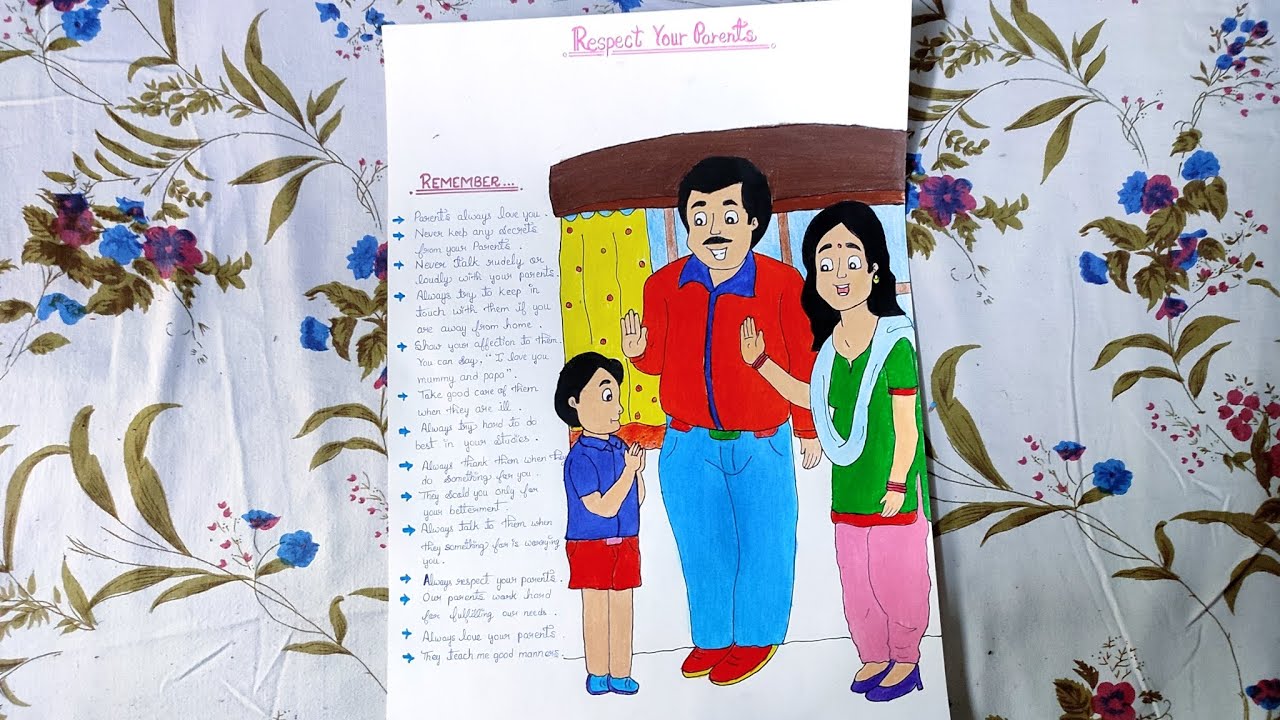 Respect Your Parents
REMEMBER...
Parent's always love you.
Never keep any secrets
from your Parents.
Never talk rudely or
loudly with your parents.
Always try to keep in
touch with them if you
are away from home.
Show your affection to them.
You can say, "I love you
mummy and papa".
Take good care of them
when they are ill.
Always try hard to do
best in your studies.
Always thank them when they
do something for you.
They scold you only for
your betterment.
Always talk to them when
they something for is worrying
you.
Always respect your parents.
Our parents work hard
for fulfilling our needs.
Always love your parents.
They teach me good manners.